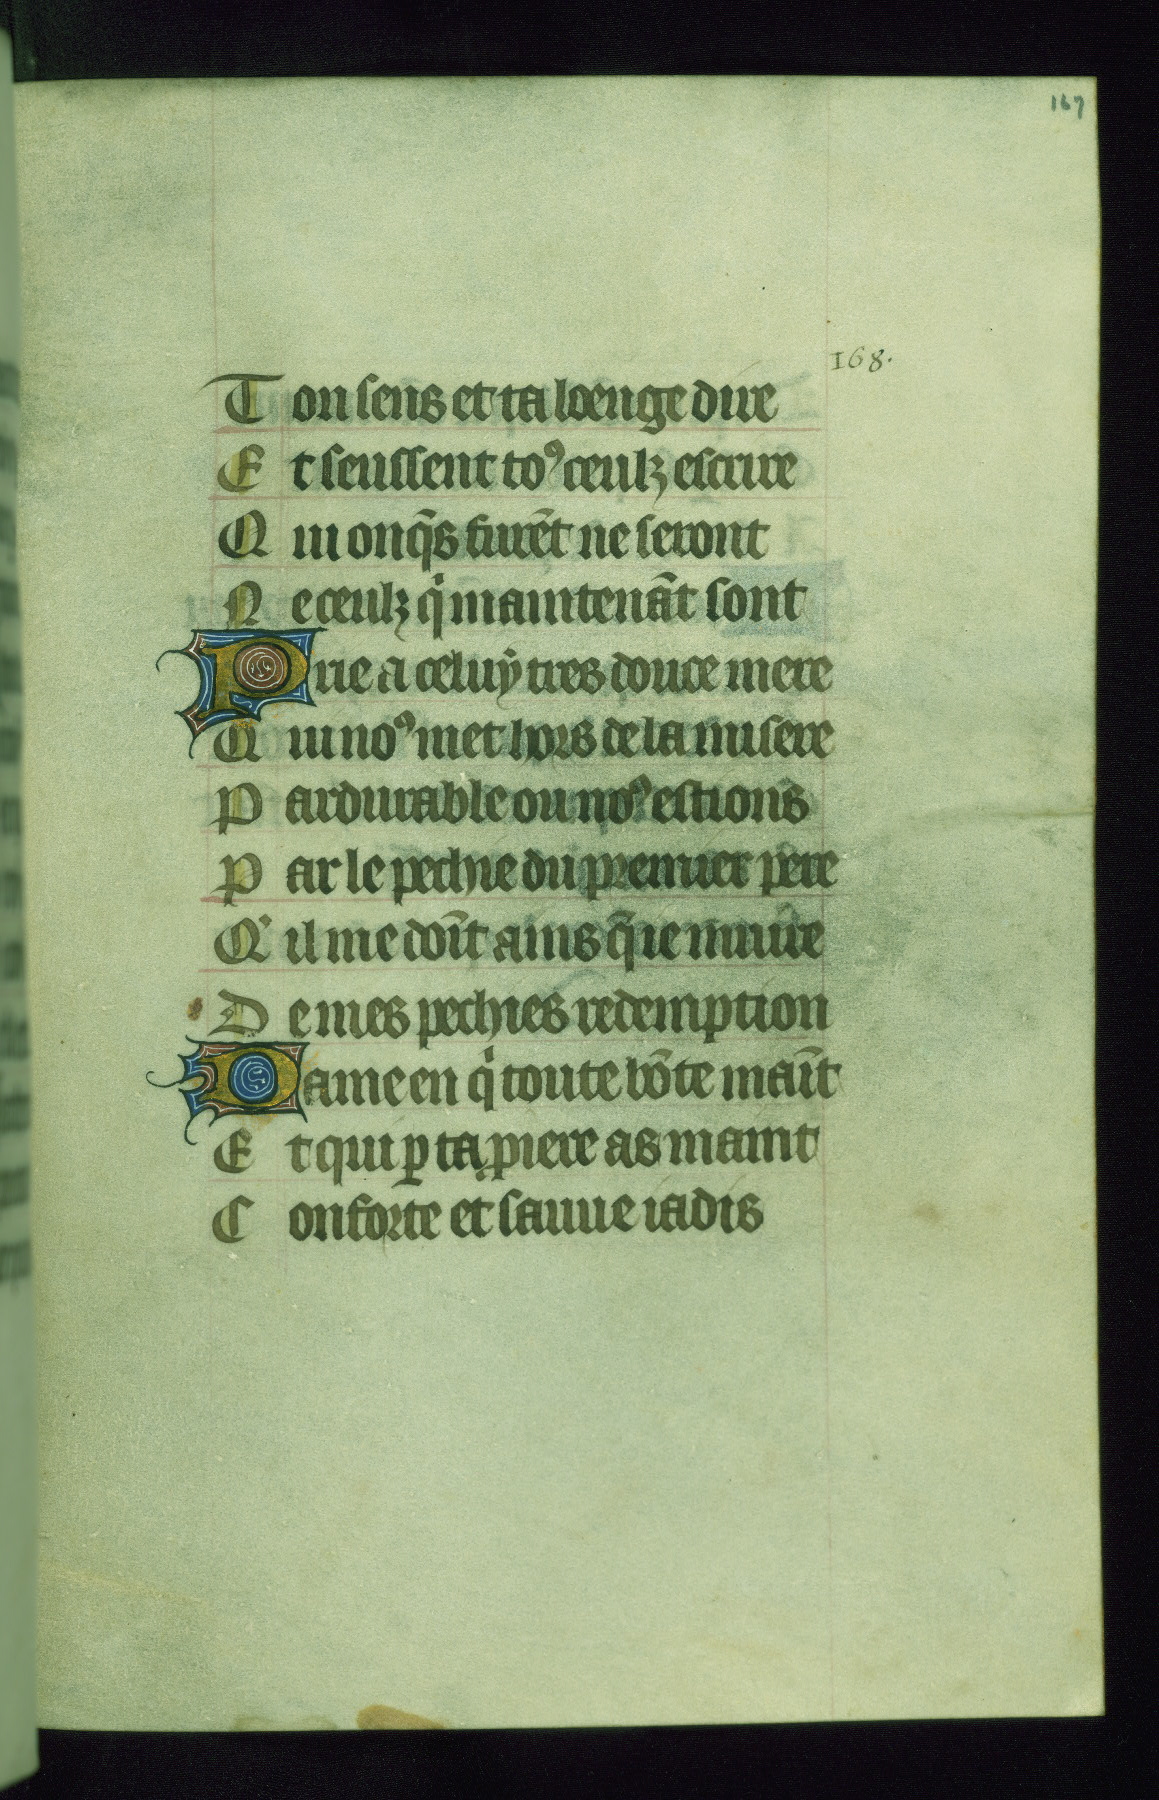 167
168.
Ton sens et ta loenge dire
Et seussent toꝰ ceulz escrire
Qui onq̃s furẽt ne seront
Ne ceulz qⁱ maintenãt sont
Prie a celuy tres douce mere
Qui noꝰ met hors de la misere
Pardurable ou noꝰ estions
Par le pechie du premier pere
Qⁱl me doĩt ains q̃ ie muire
De mes pechies redemption
Dame en qⁱ toute bõte maĩt
Et qui ꝑ ta pⁱere as maint
Conforte et sauue iadis